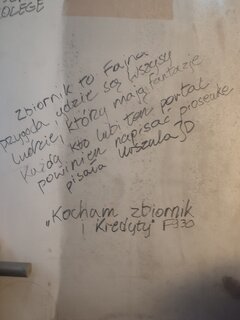 OLEGE
Zbiornik to Fajna
przygoda gdzie są wszyscy
ludzie, którzy mają fantazje
Każdą kto lubi ten portal
powinien napisać prosenke
pisała Urszula JD
"Kocham zbiornik
i kredyty"